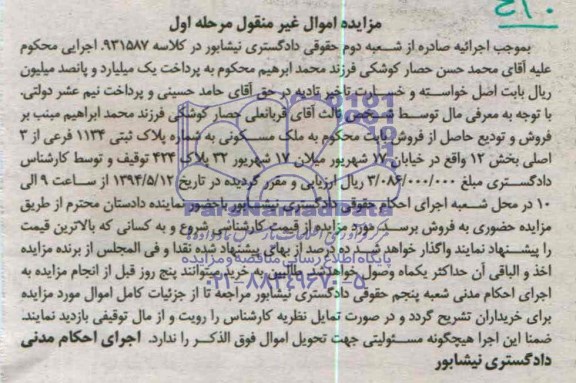 ۴/۰
مزایده اموال غیر منقول مرحله اول
بموجب اجرائیه صادره از شعبه دوم حقوقی دادگستری نیشابور در کلاسه ۹۳۱۵۸۷. اجرایی محکوم
علیه آقای محمد حسن حصار کوشکی فرزند محمد ابرهیم محکوم به پرداخت یک میلیارد و پانصد میلیون
ریال بابت اصل خواسته و خسارت تاخیر تادیه در حق آقای حامد حسینی و پرداخت نیم عشر دولتی.
با توجه به معرفی مال توسط شخص ثالث آقای قربانعلی حصار کوشکی فرزند محمد ابراهیم مبنی بر
فروش و تودیع حاصل از فروش بابت محکوم به ملک مسکونی به شماره پلاک ثبتی ۱۱۳۴ فرعی از ۳
اصلی بخش ۱۲ واقع در خیابان ۱۷ شهریور میلان ۱۷ شهریور ۳۲ پلاک ۴۲۴ توقیف و توسط کارشناس
دادگستری مبلغ ۳/۰۸۶/۰۰۰/۰۰۰ ریال ارزیابی و مقرر گردیده در تاریخ ۱۳۹۴/۵/۱۲ از ساعت ۹ الی
۱۰ در محل شعبه اجرای احکام حقوقی دادگستری نیشابور باحضور نماینده دادستان محترم از طریق
مزایده حضوری به فروش برسد. مورد مزایده از قیمت کارشناسی شروع و به کسانی که بالاترین قیمت
را پیشنهاد نمایند واگذار خواهد شد. ده درصد از بهای پیشنهاد شده نقدا و فی المجلس از برنده مزایده
اخذ و الباقی آن حداکثر یکماه وصول خواهد شد طالبین به خرید میتوانند پنج روز قبل از انجام مزایده به
اجرای احکام مدنی شعبه پنجم حقوقی دادگستری نیشابور مراجعه تا از جزئیات کامل اموال مورد مزایده
برای خریداران تشریح گردد و در صورت تمایل نظریه کارشناس را رویت و از مال توقیفی بازدید نمایند.
ضمنا این اجرا هیچگونه مسئولیتی جهت تحویل اموال فوق الذکر را ندارد. اجرای احکام مدنی
دادگستری نیشابور
ParsNamadData
پایگاه اطلاع رسانی مناقصه و مزایده
۰۲۱-۸۸۳۴۹۶۷۰-۵